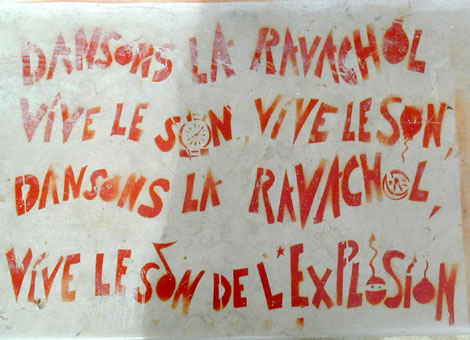 DANSONS LA RAVACHOL
VIVE LE SON, VIVE LE SON,
DANSONS LA RAVACHOL,
VIVE LE SON DE L'EXPLOSION